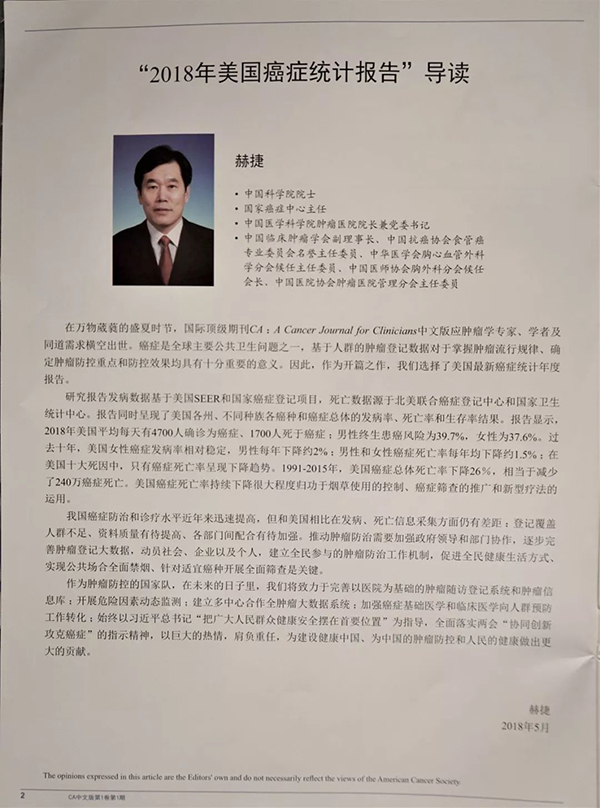 “2018年美国癌症统计报告”导读
赫捷
• 中国科学院院士
• 国家癌症中心主任
• 中国医学科学院肿瘤医院院长兼党委书记
• 中国临床肿瘤学会副理事长、中国抗癌协会食管癌
专业委员会名誉主任委员、中华医学会胸心血管外科
学分会候任主任委员、中国医师协会胸外科分会候任
会长、中国医院协会肿瘤医院管理分会主任委员
在万物葳蕤的盛夏时节，国际顶级期刊CA：A Cancer Journal for Clinicians中文版应肿瘤学专家、学者及
同道需求横空出世。癌症是全球主要公共卫生问题之一，基于人群的肿瘤登记数据对于掌握肿瘤流行规律、确
定肿瘤防控重点和防控效果均具有十分重要的意义。因此，作为开篇之作，我们选择了美国最新癌症统计年度
报告。
研究报告发病数据基于美国SEER和国家癌症登记项目，死亡数据源于北美联合癌症登记中心和国家卫生
统计中心。报告同时呈现了美国各州、不同种族各癌种和癌症总体的发病率、死亡率和生存率结果。报告显示，
2018年美国平均每天有4700人确诊为癌症、1700人死于癌症；男性终生患癌风险为39.7%，女性为37.6%。过
去十年，美国女性癌症发病率相对稳定，男性每年下降约2%；男性和女性癌症死亡率每年均下降约1.5%；在
美国十大死因中，只有癌症死亡率呈现下降趋势。1991-2015年，美国癌症总体死亡率下降26%，相当于减少
了240万癌症死亡。美国癌症死亡率持续下降很大程度归功于烟草使用的控制、癌症筛查的推广和新型疗法的
运用。
我国癌症防治和诊疗水平近年来迅速提高，但和美国相比在发病、死亡信息采集方面仍有差距：登记覆盖
人群不足、资料质量有待提高、各部门间配合有待加强。推动肿瘤防治需要加强政府领导和部门协作，逐步完
善肿瘤登记大数据，动员社会、企业以及个人，建立全民参与的肿瘤防治工作机制，促进全民健康生活方式、
实现公共场合全面禁烟、针对适宜癌种开展全面筛查是关键。
作为肿瘤防控的国家队，在未来的日子里，我们将致力于完善以医院为基础的肿瘤随访登记系统和肿瘤信
息库；开展危险因素动态监测；建立多中心合作全肿瘤大数据系统；加强癌症基础医学和临床医学向人群预防
工作转化；始终以习近平总书记“把广大人民群众健康安全摆在首要位置”为指导，全面落实两会“协同创新
攻克癌症”的指示精神，以巨大的热情，肩负重任，为建设健康中国、为中国的肿瘤防控和人民的健康做出更
大的贡献。
赫捷
2018年5月
The opinions expressed in this article are the Editors' own and do not necessarily reflect the views of the American Cancer Society.
2 CA中文版第1卷第1期